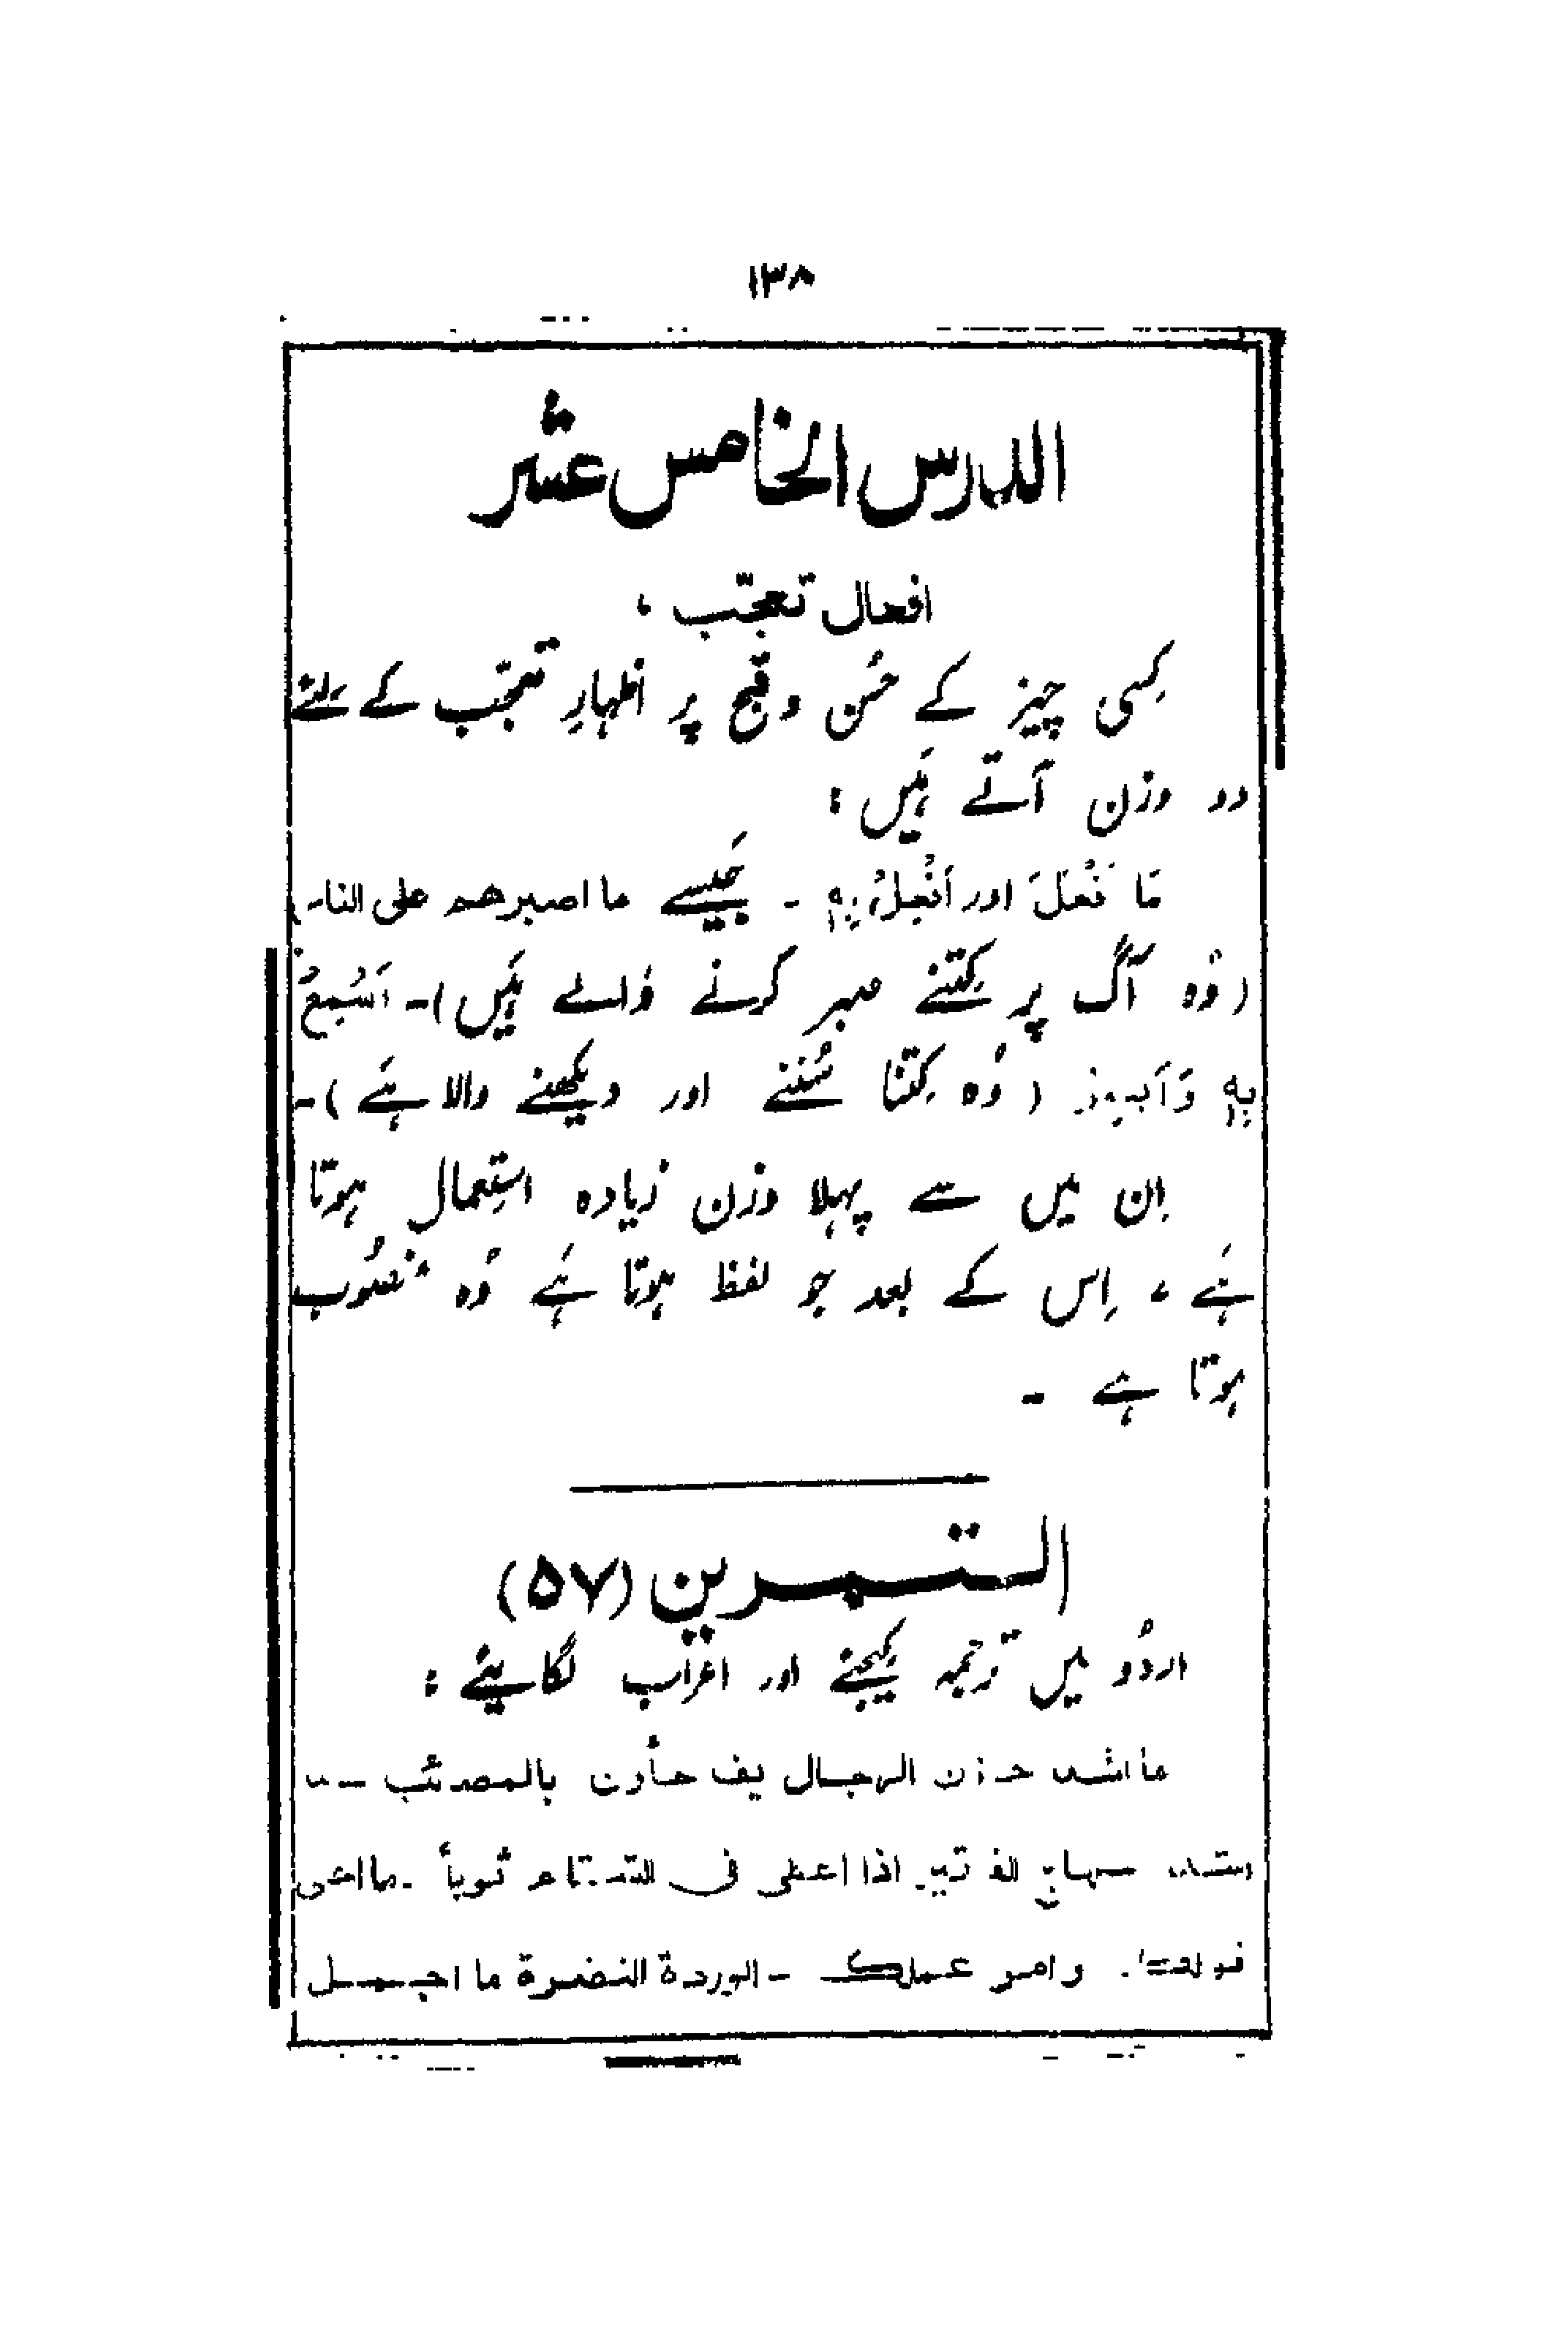 ۱۳۸
الدرس الخامس عشر
افعال تعجّب ،
کِسی چیز کے حُسن و قبح پر اظہارِ تعجّب کے لئے
دو وزن آتے ہَیں :
مَا فْعَلَ اور اَفْعِلْ بِہٖ - جَیسے ما اصبرهم على النار
(وُہ آگ پر کِتنے صبر کرنے والے ہَیں)۔ اَسْمِعْ
بِہٖ وَاَبصِر (وُہ کِتنا سُننے اور دیکھنے والا ہَے)۔
اِن میں سے پہلا وزن زیادہ استِعمال ہوتا
ہَے ، اِس کے بعد جو لفظ ہوتا ہَے وُہ منصُوب
ہوتا ہے ۔
التمرين (۵۷)
اردُو میں ترجمہ کیجئے اور اعراب لگایئے :
ما اشد الرجال بالمصائب
اذا اعطى فى ثوباً - ما
وامر عملك - الوردة النضرة ما اجمل